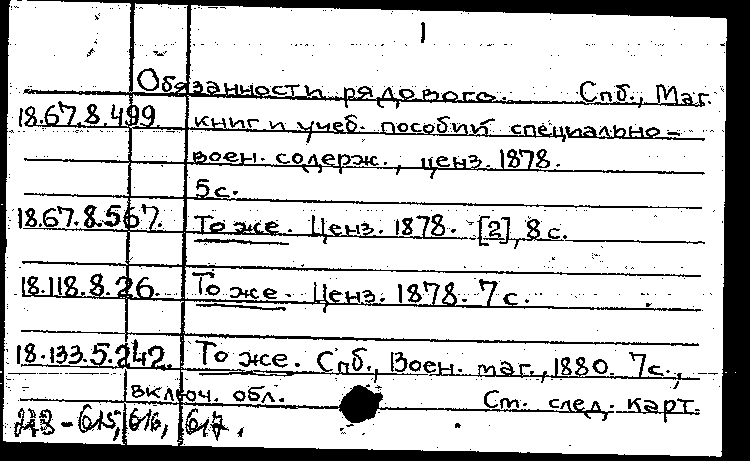 1
Обязанности рядового. Спб., Маг.
18.67.8.499. книг и учеб. пособий специально-
воен. содерж., ценз. 1878.
5 с.
18.67.8.567. То же. Ценз. 1878. [2], 8 с.
18.118.8.26. То же. Ценз. 1878. 7 с.
18.133.5.242. То же. Спб., Воен. маг., 1880. 7 с.,
включ. обл. См. след. карт.
615, 616, 617.